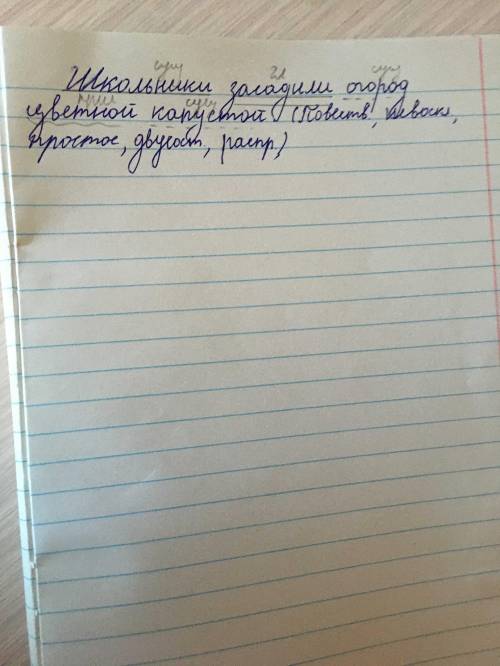 сущ гл сущ
Школьники засадили огород
прил сущ
цветной капустой (Повеств, невоскл,
простое, двусост, распр)